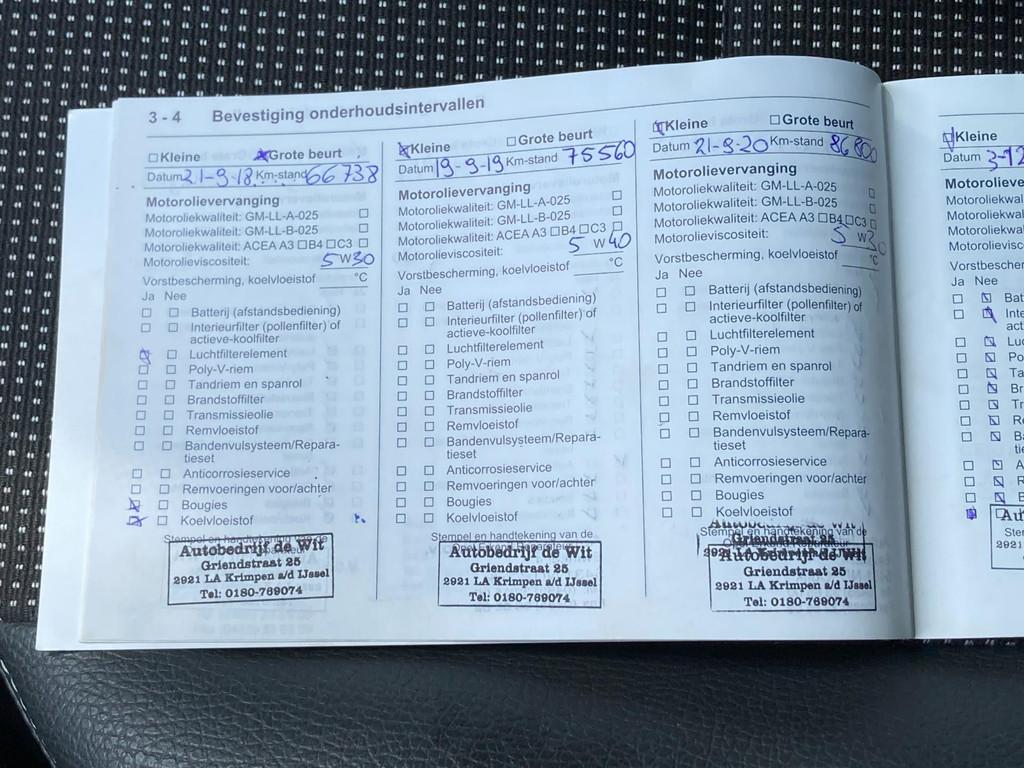 3 - 4 Bevestiging onderhoudsintervallen
Kleine Grote beurt
Datum 21-9-18 Km-stand 66738
Motorolievervanging
Motoroliekwaliteit: GM-LL-A-025
Motoroliekwaliteit: GM-LL-B-025
Motoroliekwaliteit: ACEA A3 B4 C3
Motorolieviscositeit: 5 W 30
Vorstbescherming, koelvloeistof °C
Ja Nee
Batterij (afstandsbediening)
Interieurfilter (pollenfilter) of
actieve-koolfilter
Luchtfilterelement
Poly-V-riem
Tandriem en spanrol
Brandstoffilter
Transmissieolie
Remvloeistof
Bandenvulsysteem/Repara-
tieset
Anticorrosieservice
Remvoeringen voor/achter
Bougies
Koelvloeistof
Stempel en handtekening van de
Autobedrijf de Wit
Griendstraat 25
2921 LA Krimpen a/d IJssel
Tel: 0180-769074
Kleine Grote beurt
Datum 19-9-19 Km-stand 75560
Motorolievervanging
Motoroliekwaliteit: GM-LL-A-025
Motoroliekwaliteit: GM-LL-B-025
Motoroliekwaliteit: ACEA A3 B4 C3
Motorolieviscositeit: 5 W 40
Vorstbescherming, koelvloeistof °C
Ja Nee
Batterij (afstandsbediening)
Interieurfilter (pollenfilter) of
actieve-koolfilter
Luchtfilterelement
Poly-V-riem
Tandriem en spanrol
Brandstoffilter
Transmissieolie
Remvloeistof
Bandenvulsysteem/Repara-
tieset
Anticorrosieservice
Remvoeringen voor/achter
Bougies
Koelvloeistof
Stempel en handtekening van de
Autobedrijf de Wit
Griendstraat 25
2921 LA Krimpen a/d IJssel
Tel: 0180-769074
Kleine Grote beurt
Datum 21-9-20 Km-stand 86800
Motorolievervanging
Motoroliekwaliteit: GM-LL-A-025
Motoroliekwaliteit: GM-LL-B-025
Motoroliekwaliteit: ACEA A3 B4 C3
Motorolieviscositeit: 5 W 30
Vorstbescherming, koelvloeistof °C
Ja Nee
Batterij (afstandsbediening)
Interieurfilter (pollenfilter) of
actieve-koolfilter
Luchtfilterelement
Poly-V-riem
Tandriem en spanrol
Brandstoffilter
Transmissieolie
Remvloeistof
Bandenvulsysteem/Repara-
tieset
Anticorrosieservice
Remvoeringen voor/achter
Bougies
Koelvloeistof
Stempel en handtekening van de
Griendstraat 25
Autobedrijf de Wit
Griendstraat 25
2921 LA Krimpen a/d IJssel
Tel: 0180-769074
Kleine
Datum 3-12
Ja Nee
2921